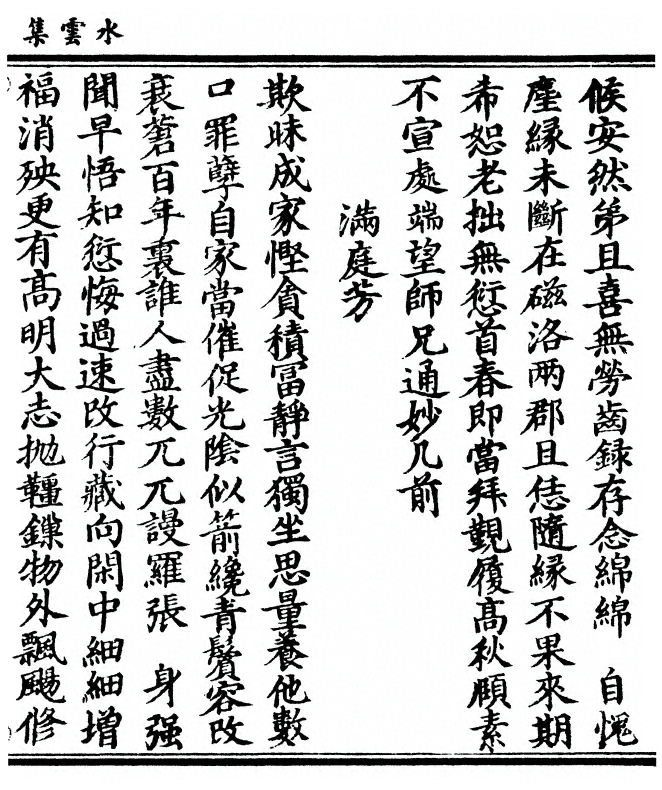 水雲集
候安然弟且喜無勞齒録存念綿綿　自愧
塵緣未斷在磁洛兩郡且恁隨緣不果來期
希恕老拙無愆首春即當拜覲履髙秋順素
不宣處端望師兄通妙几前
滿庭芳
欺昧成家慳貪積冨靜言獨坐思量養他數
口罪孽自家當催促光陰似箭纔青鬢容改
衰蒼百年裏誰人盡數兀兀謾羅張　身强
聞早悟知愆悔過速改行藏向閑中細細增
福消殃更有髙明大志抛韁鏁物外飄颺修